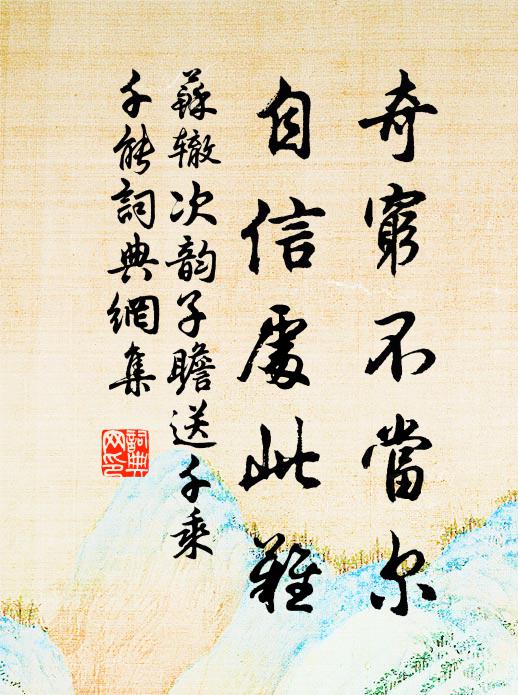 奇窮不當尔
自信處此難
蘇辙次韵子瞻送千乘
千能詞典網集
詞典
网印